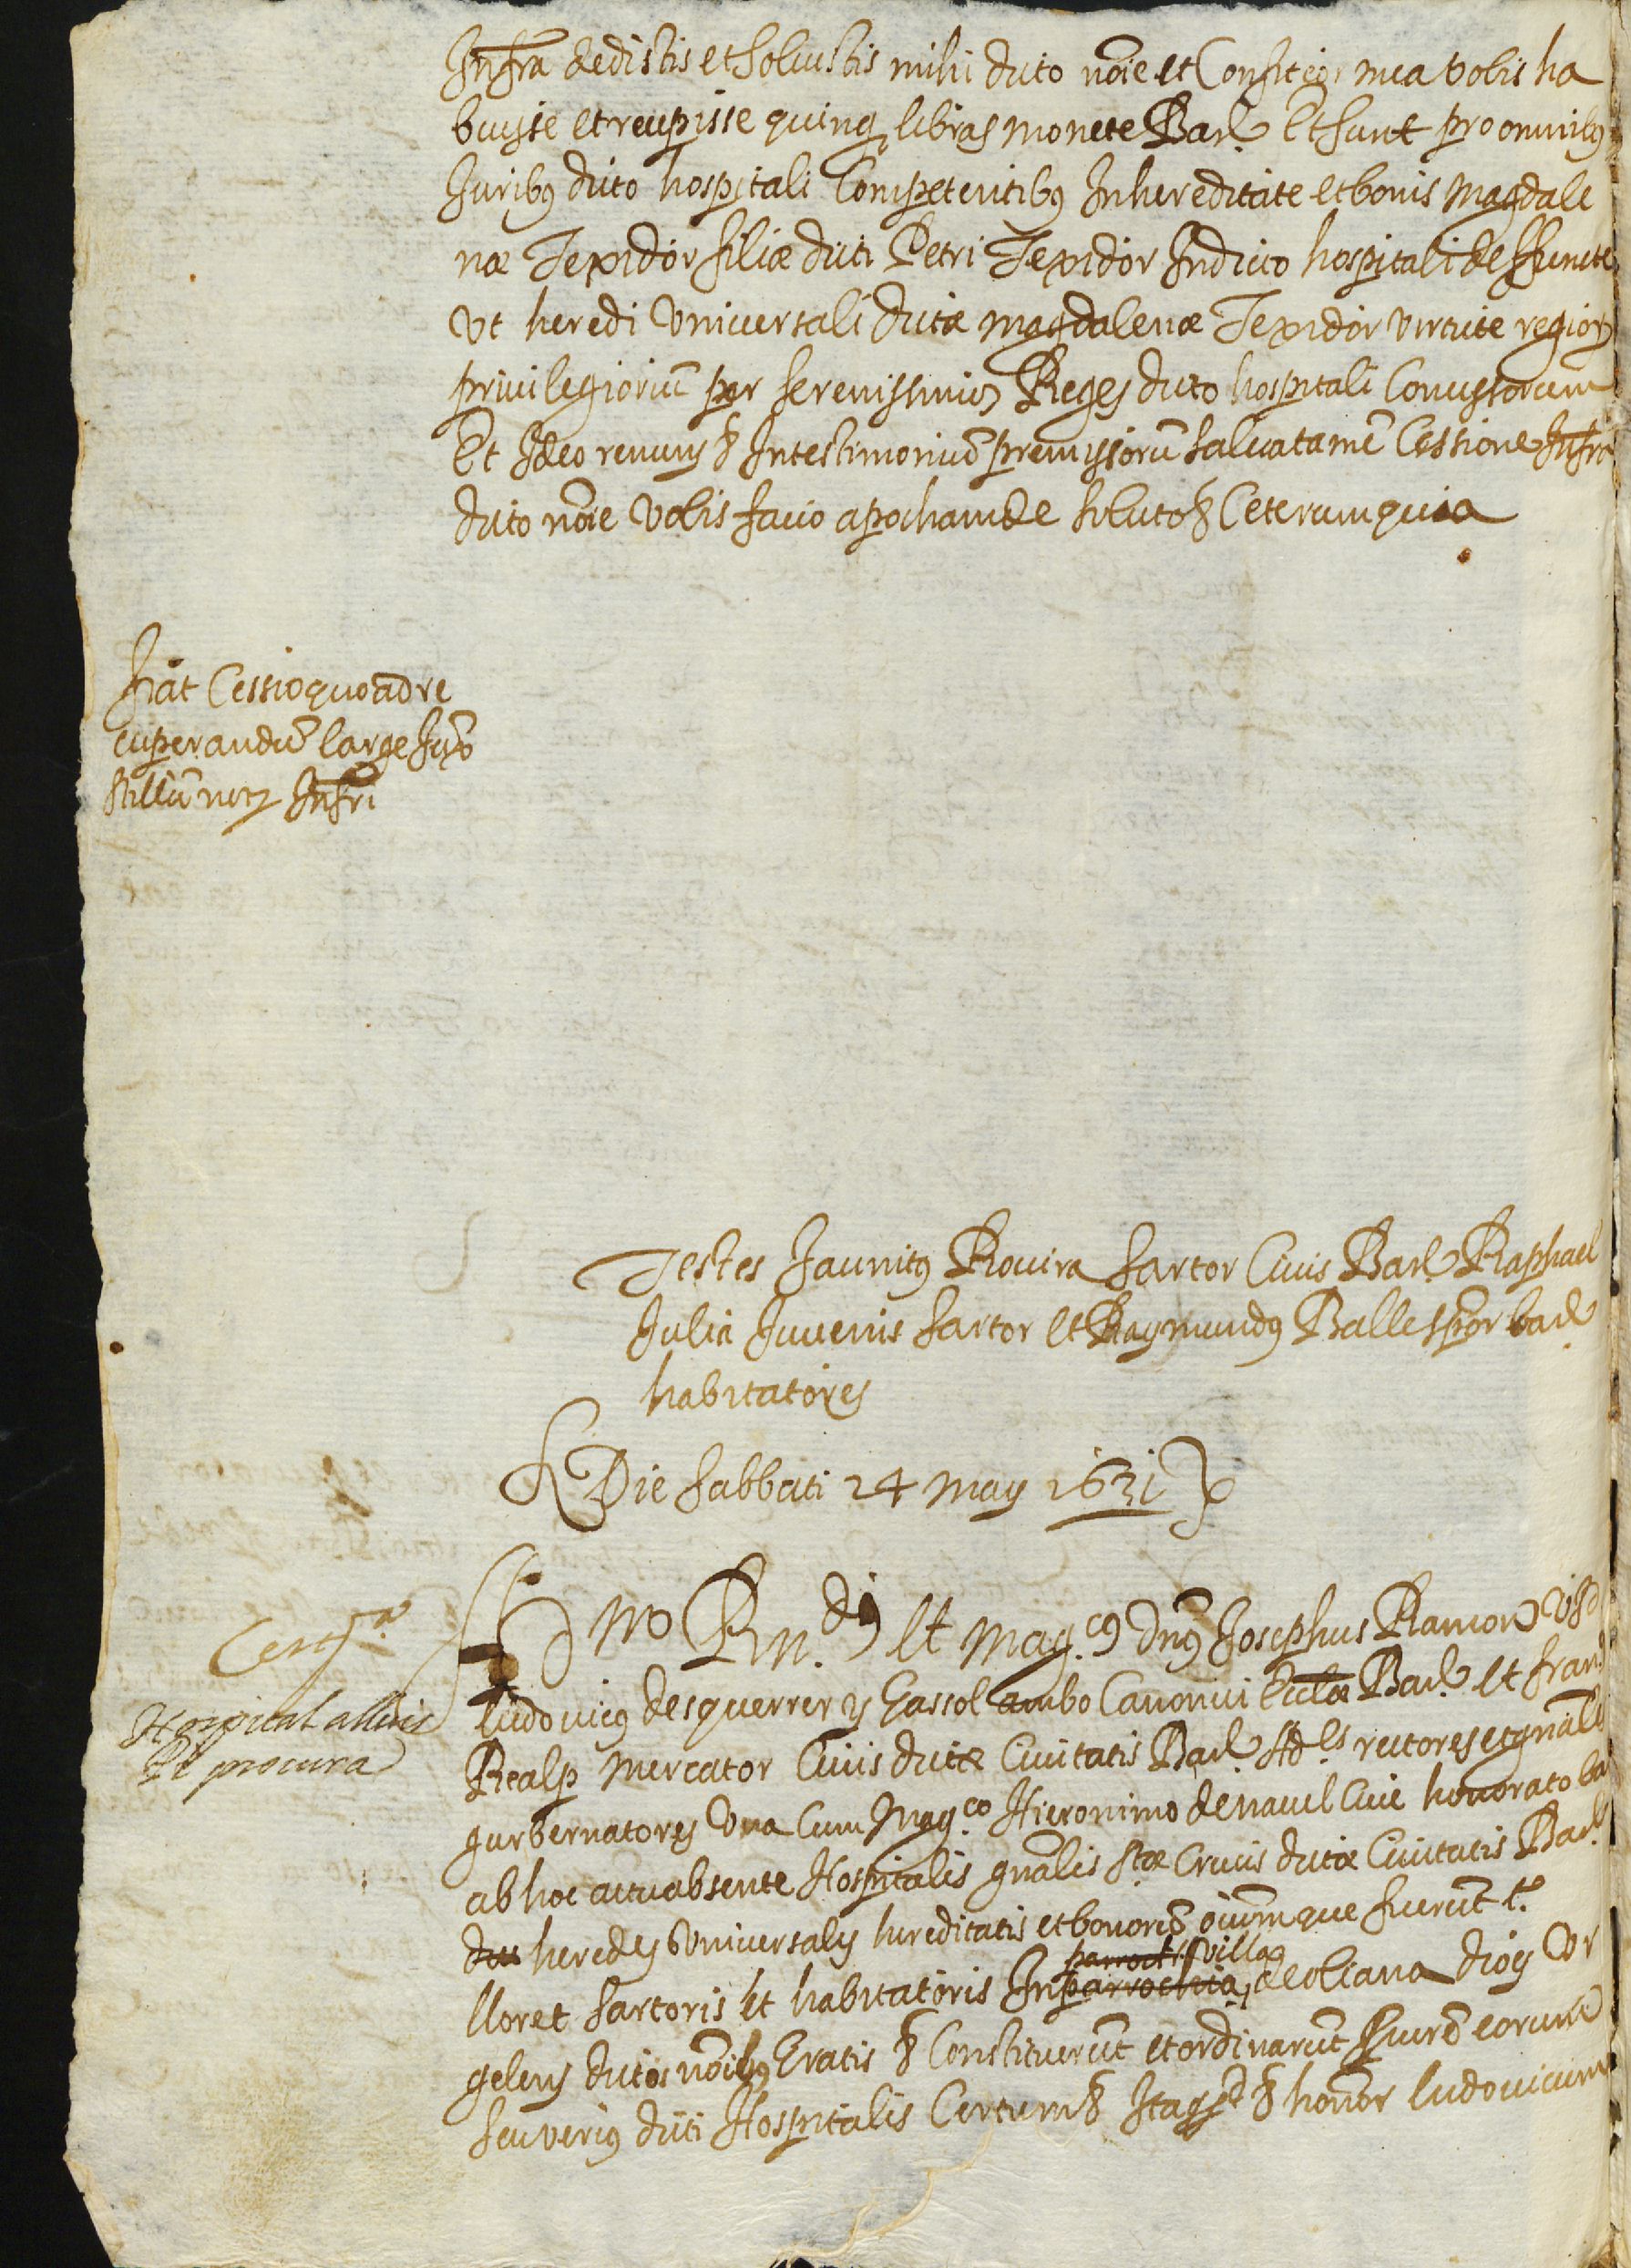 Infra dedistis et solvistis mihi dicto nõie et Confiteor mea vobis ha
buisse et recepisse quinq libras monete Barᵉ Et sunt pro omnibꝰ
Juribꝰ dicto hospitali Competentibꝰ In hereditate et bonis Magdale
næ Texidor filiæ dicti Petri Texidor In dicto hospitali deffuncte
Vt heredi Vniversali dictæ Magdalenæ Texidor virtute regior
privilegioriũ per serenissimos Reges dicto hospitali Concessorum
Et Ideo renuns & In testimoniũ premissorũ salva tamẽ Cessione Infra
dicto nõie Vobis facio apocham de soluto & Ceterum quia
Fiat Cessio quo ad re
cuperandũ large Juxº
stillũ noty Infrı
Testes Jaunitꝰ Rovira sartor Civis Barᵉ Raphael
Julia Juvenis sartor et Raymundꝰ Ballesper barᵉ
habitatores
Die Sabbati 24 May 1631
Cert.ª
Hospital altris
Et procura
Nos Rn.dꝰ et Mag.cꝰ Dnꝰ Josephus Ramon VJD
Ludovicꝰ desquerrer y Gassol ambo Canonici Ecclæ Barᵉ et fran
Realp Mercator Civis dictæ Civitatis Barᵉ rectores et gnãls
gurbernatores Vna Cum Mag.co Hieronimo de navel Cive honorato ba
ab hoc actu absente Hospitalis gnãlis Stæ Crucis dictæ Civitatis Barᵉ
dicti heredes Vniversaly hereditatis et bonorũ õium que fuerũt
parroch villa
lloret sartoris et habitatoris In parrochia de oliana dioy Vr
gelens dictis nõibꝰ Gratis & Constituerũt et ordinarũt eorum
seu verius dicti Hospitalis Certum & Itaq & honor Ludovicum